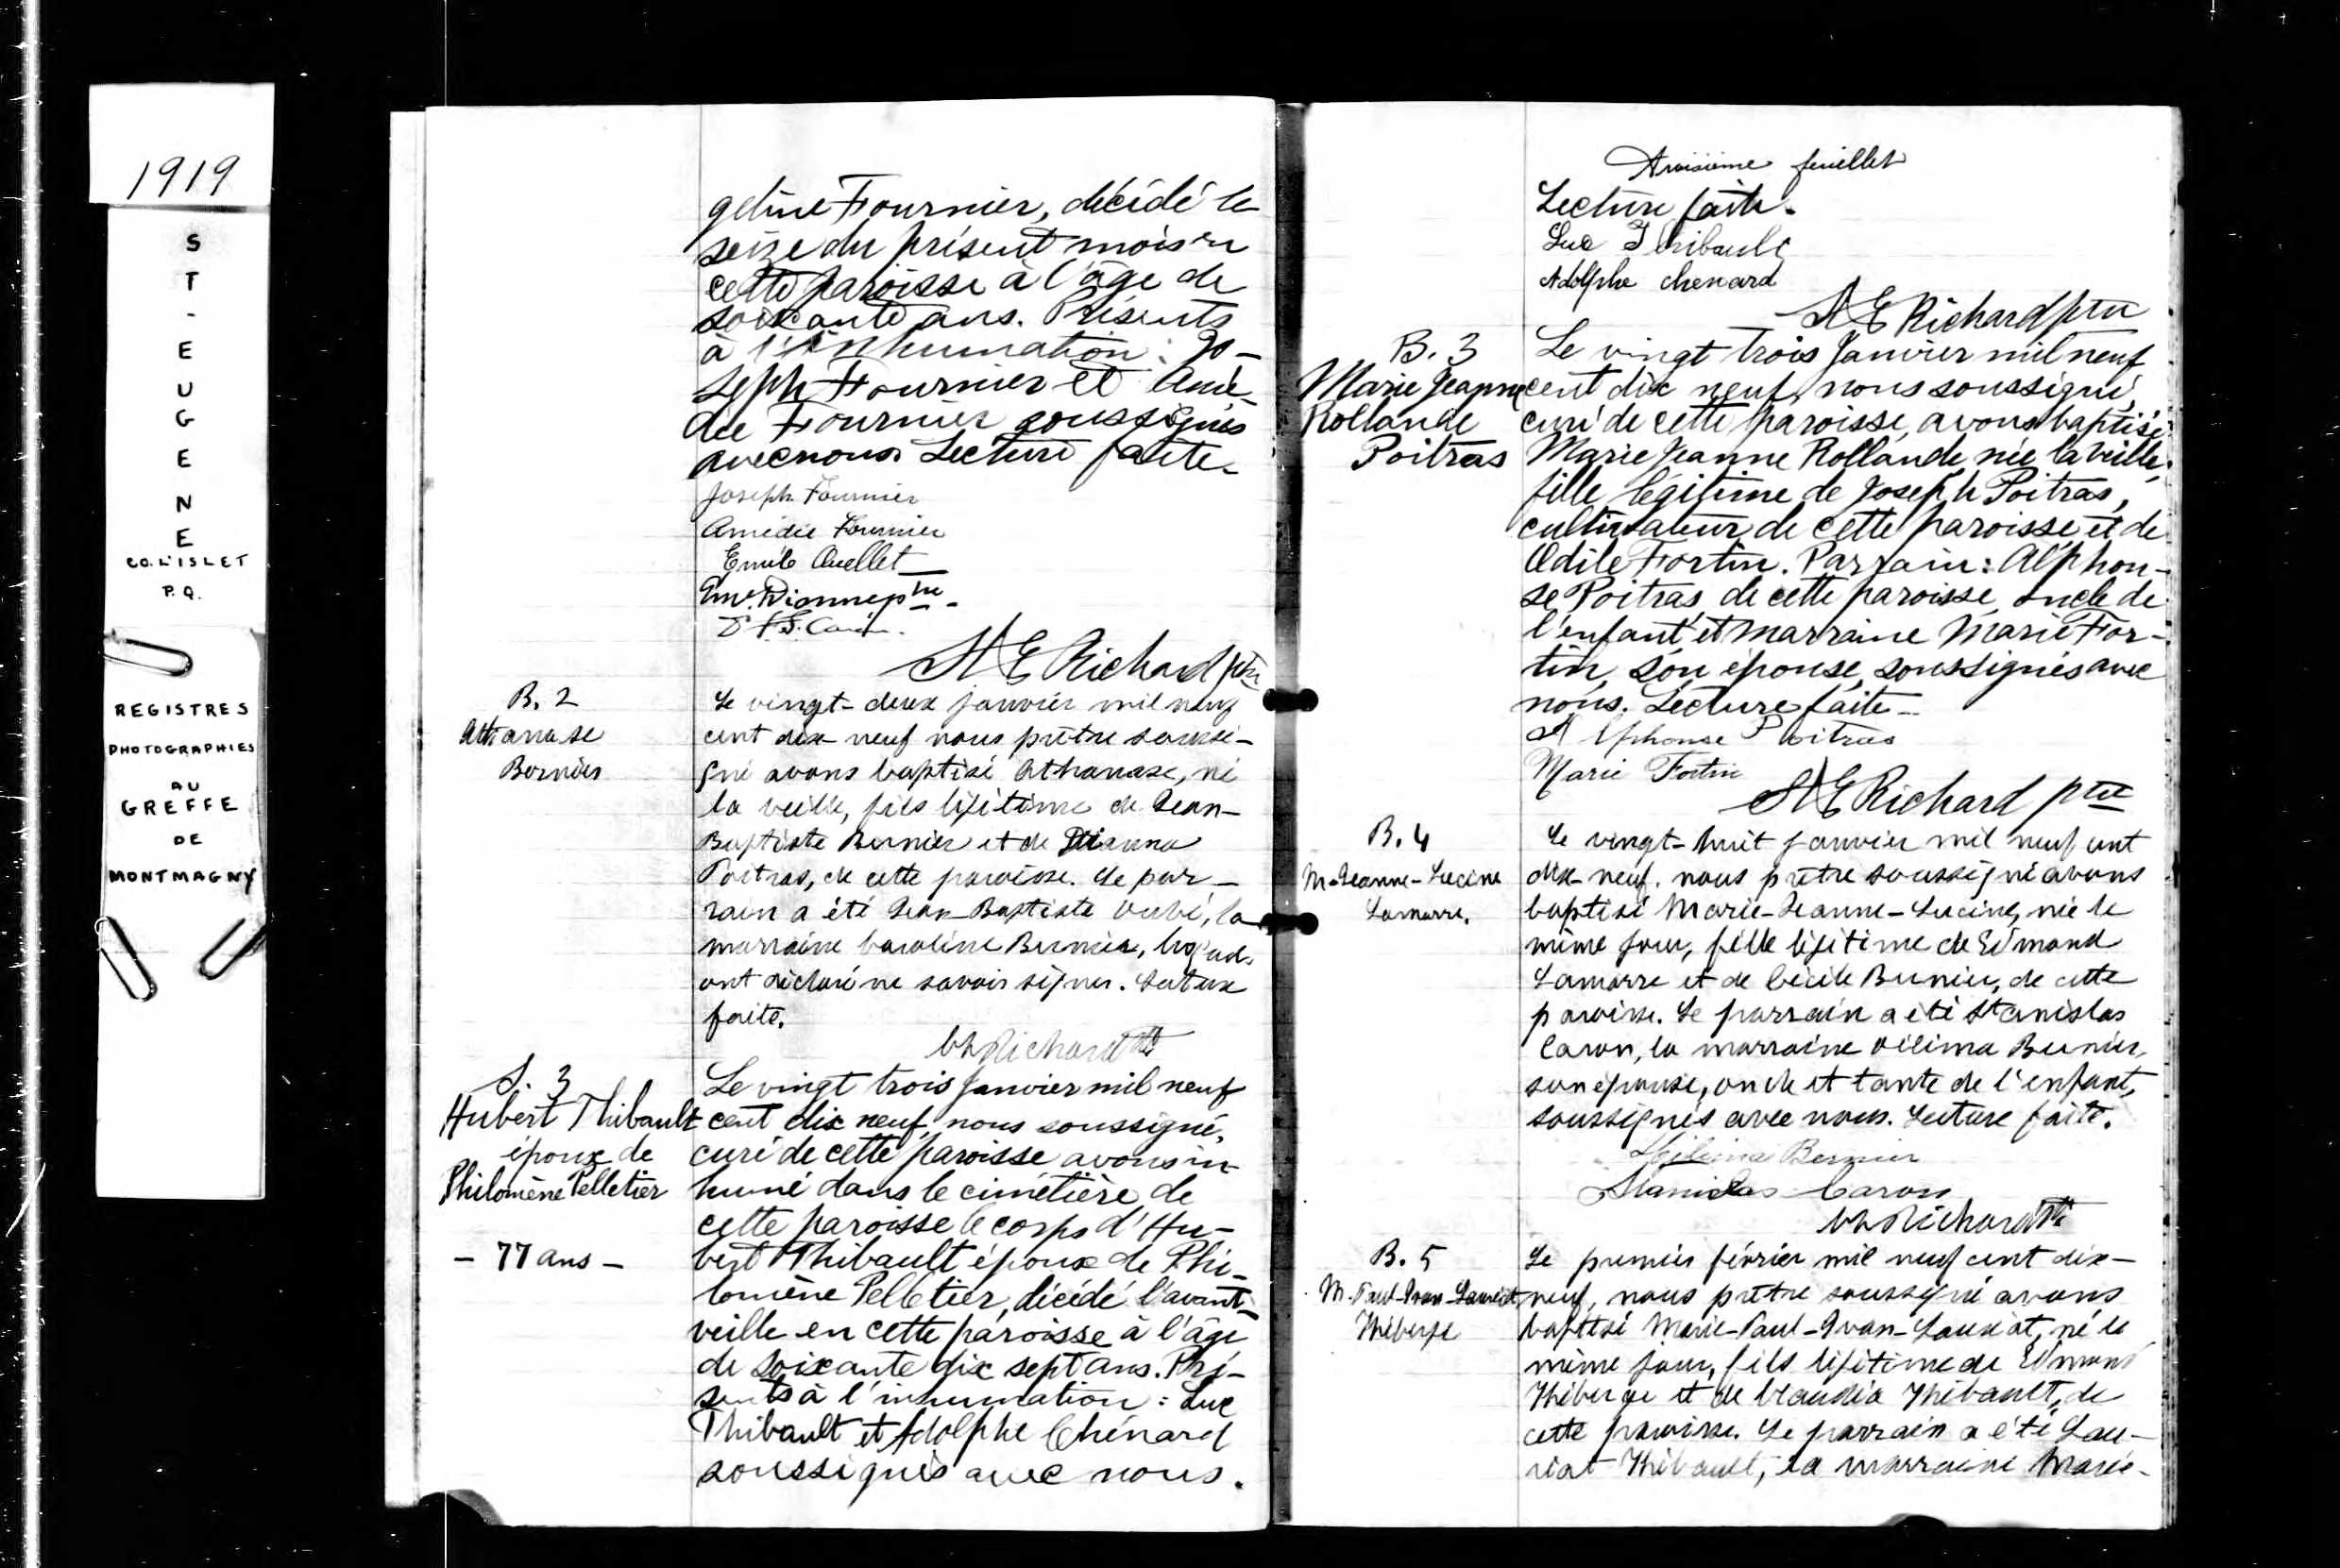 1919
ST-EUGENE
CO. L'ISLET
P.Q.
REGISTRES
PHOTOGRAPHIES
AU
GREFFE
DE
MONTMAGNY
geline Fournier, décédé le
seize du présent mois en
cette paroisse à l'âge de
soixante ans. Présents
à l'inhumation : Jo-
seph Fournier et Amé-
dée Fournier soussignés
avec nous. Lecture faite.
Joseph Fournier
Amédée Fournier
Emile Ouellet
Dionne ptre
St E Richard ptre
B. 2
Athanase
Bernier
Le vingt-deux janvier mil neuf
cent dix-neuf nous prêtre soussi-
gné avons baptisé Athanase, né
la veille, fils légitime de Jean-
Baptiste Bernier et de Dianna
Poitras, de cette paroisse. Le par-
rain a été Jean-Baptiste Dubé, la
marraine Caroline Bernier, lesquels
ont déclaré ne savoir signer. Lecture
faite.
Richard ptre
S. 3
Hubert Thibault
époux de
Philomène Pelletier
- 77 ans -
Le vingt trois janvier mil neuf
cent dix neuf, nous soussigné,
curé de cette paroisse avons in-
humé dans le cimetière de
cette paroisse le corps d'Hu-
bert Thibault époux de Phi-
lomène Pelletier, décédé l'avant-
veille en cette paroisse à l'âge
de soixante dix sept ans. Pré-
sents à l'inhumation : Luc
Thibault et Adolphe Chénard
soussignés avec nous.
Troisième feuillet
Lecture faite.
Luc Thibault
Adolphe Chenard
St E Richard ptre
B. 3
Marie Jeanne
Rollande
Poitras
Le vingt trois janvier mil neuf
cent dix neuf, nous soussigné,
curé de cette paroisse, avons baptisé
Marie Jeanne Rollande, née la veille,
fille légitime de Joseph Poitras,
cultivateur de cette paroisse et de
Odile Fortin. Parrain : Alphon-
se Poitras, de cette paroisse, oncle de
l'enfant et marraine Marie For-
tin, son épouse, soussignés avec
nous. Lecture faite -
Alphonse Poitras
Marie Fortin
St E Richard ptre
B. 4
M-Jeanne-Lucine
Lamarre.
Le vingt-huit janvier mil neuf cent
dix-neuf, nous prêtre soussigné avons
baptisé Marie-Jeanne-Lucine, née le
même jour, fille légitime de Edmond
Lamarre et de Cécile Bernier, de cette
paroisse. Le parrain a été Stanislas
Caron, la marraine Vélima Bernier,
son épouse, oncle et tante de l'enfant,
soussignés avec nous. Lecture faite.
Bernier
Stanislas Caron
Richard ptre
B. 5
M.-Paul-Ivan-Lauréat
Théberge
Le premier février mil neuf cent dix-
neuf, nous prêtre soussigné avons
baptisé Marie-Paul-Ivan-Lauréat, né le
même jour, fils légitime de Edmond
Théberge et de Claudia Thibault, de
cette paroisse. Le parrain a été Lau-
réat Thibault, la marraine Marie-